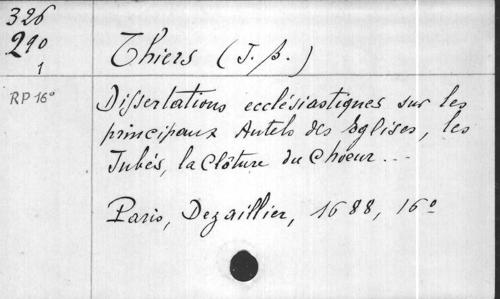 326
210
1
Thiers (J. B.)
RP 16°
Dissertations ecclésiastiques sur les
principaux Autels des Eglises, les
Jubés, la Clôture du Choeur ...
Paris, Dezaillier, 1688, 16°